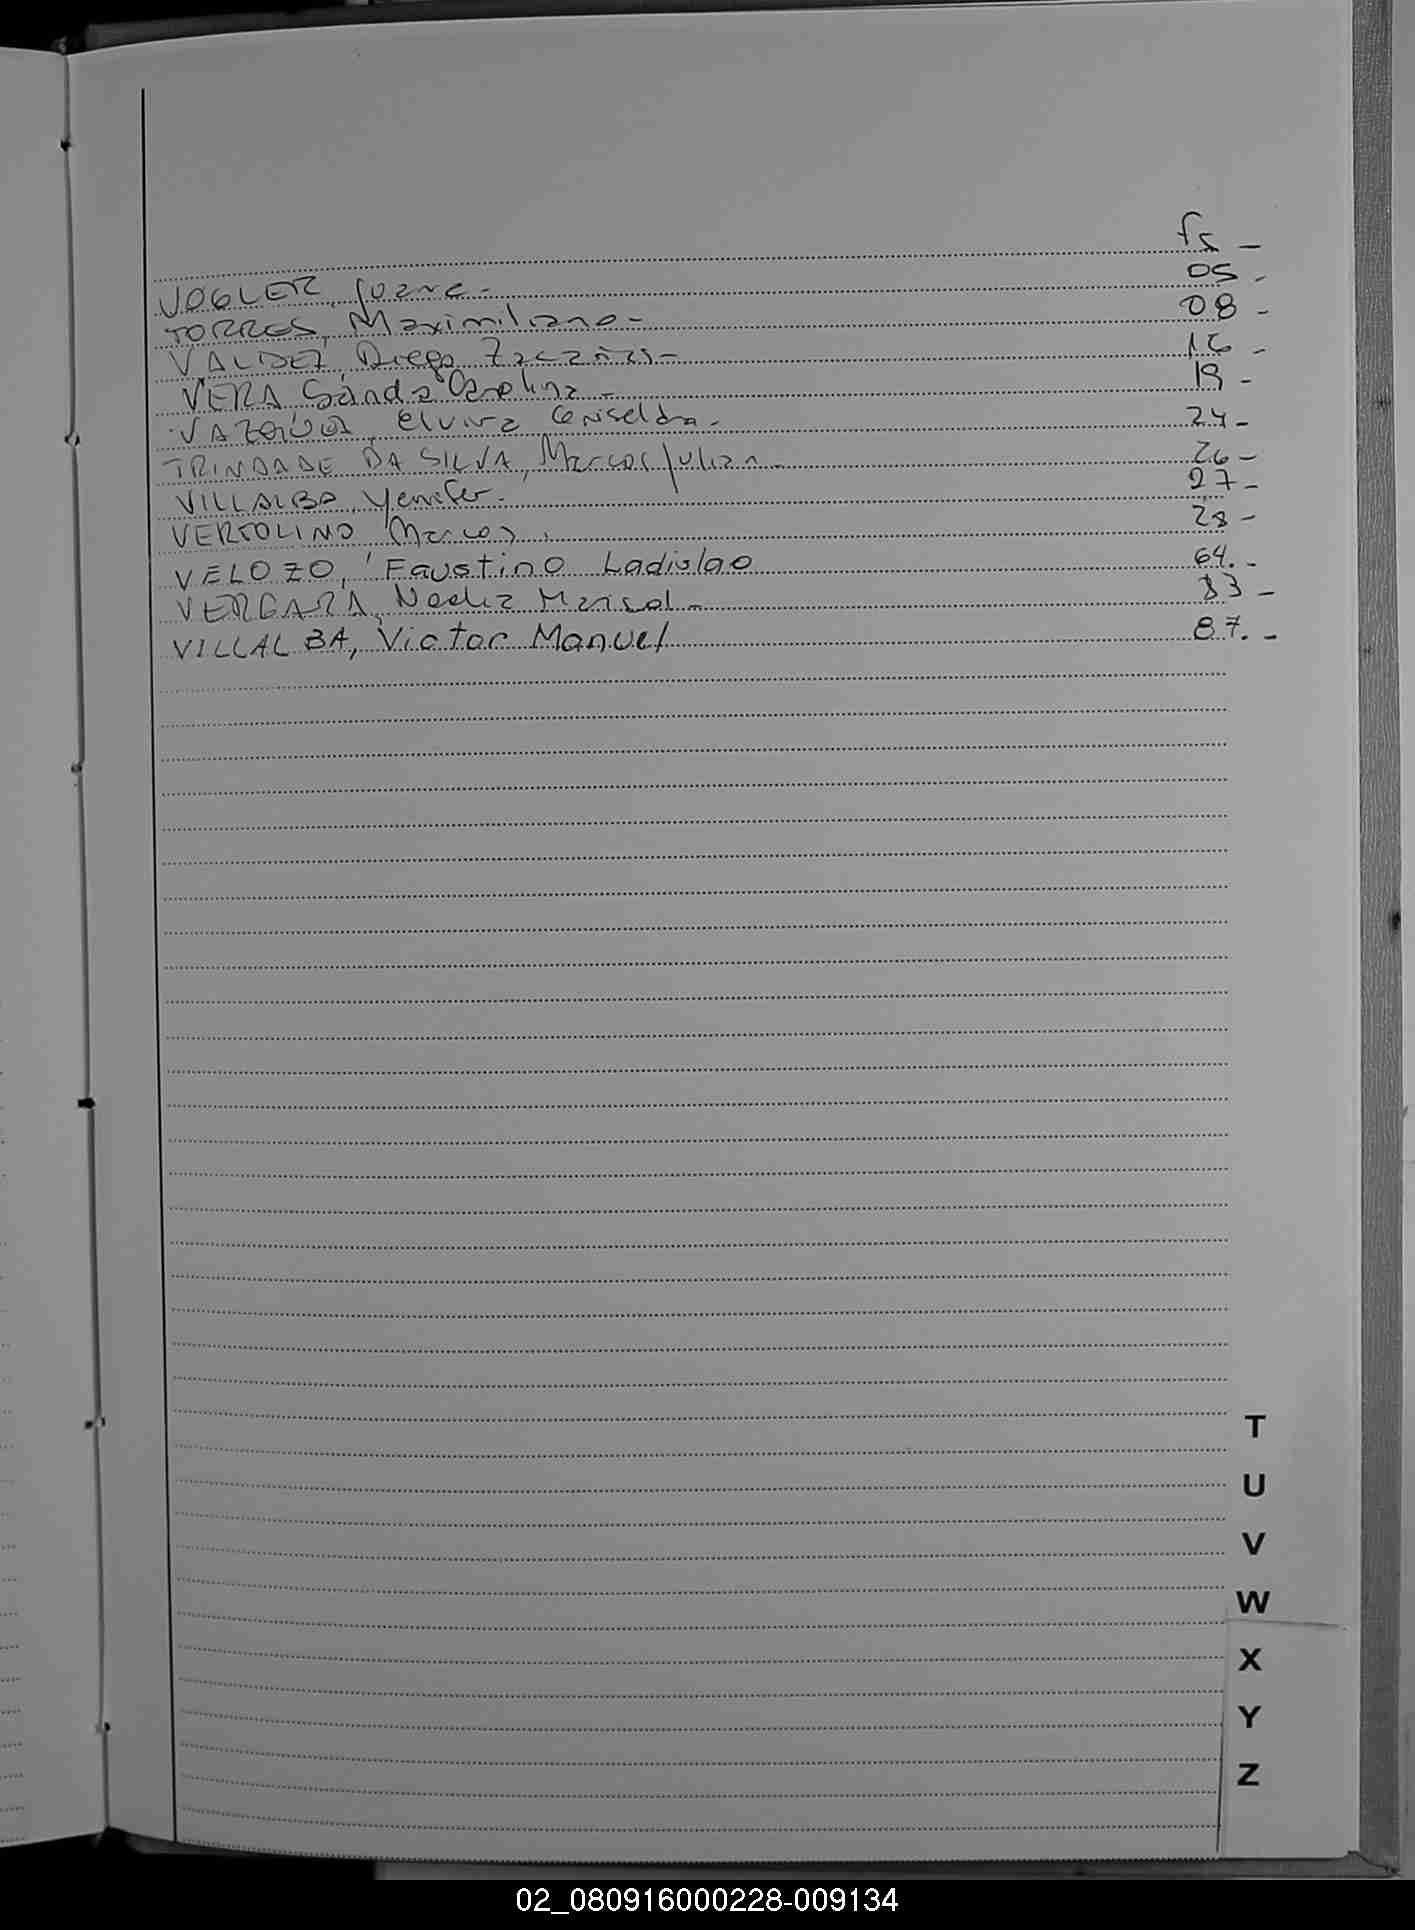 fs -
VOGLER, Juana - 05 -
TORRES, Maximiliano - 08 -
VALDEZ, Diego Zacarías - 16 -
VERA Sandra Carolina - 19 -
VAZQUEZ, Elvira Griselda - 24 -
TRINDADE DA SILVA, Marcos Julian - 26 -
VILLALBA, Yenifer - 27 -
Marcos 28 -
VELOZO, Faustino Ladislao 64. -
VERGARA, Nadia Marisol - 83 -
VILLALBA, Victor Manuel 87. -
T
U
V
W
X
Y
Z
02_080916000228-009134